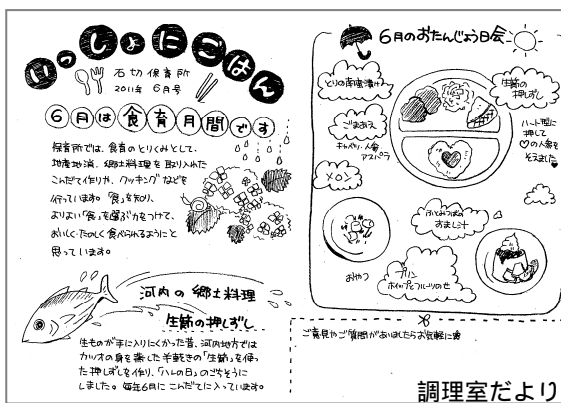 いっしょにごはん
石切保育所
2011年 6月号
6月は食育月間です
保育所では、食育のとりくみとして、
地産地消、郷土料理を取り入れた
こんだて作りや、クッキングなどを
行っています。「食」を知り、
よりよい「食」を選ぶ力をつけて、
おいしく・たのしく食べられるようにと
思っています。
河内の郷土料理
生節の押しずし
生ものが手に入りにくかった昔、河内地方では
カツオの身を蒸した半乾きの「生節」を使っ
た押しずしを作り、「ハレの日」のごちそうに
しました。毎年6月にこんだてに入っています。
6月のおたんじょう日会
とりの南蛮漬け
ごまあえ
キャベツ・人参・
アスパラ
メロン
生節の
押しずし
ハート型に
押して
♡の人参を
そえました♥
おすまし汁
おやつ
プリン
ホイップとフルーツのせ
ご意見やご質問がありましたらお気軽に
調理室だより